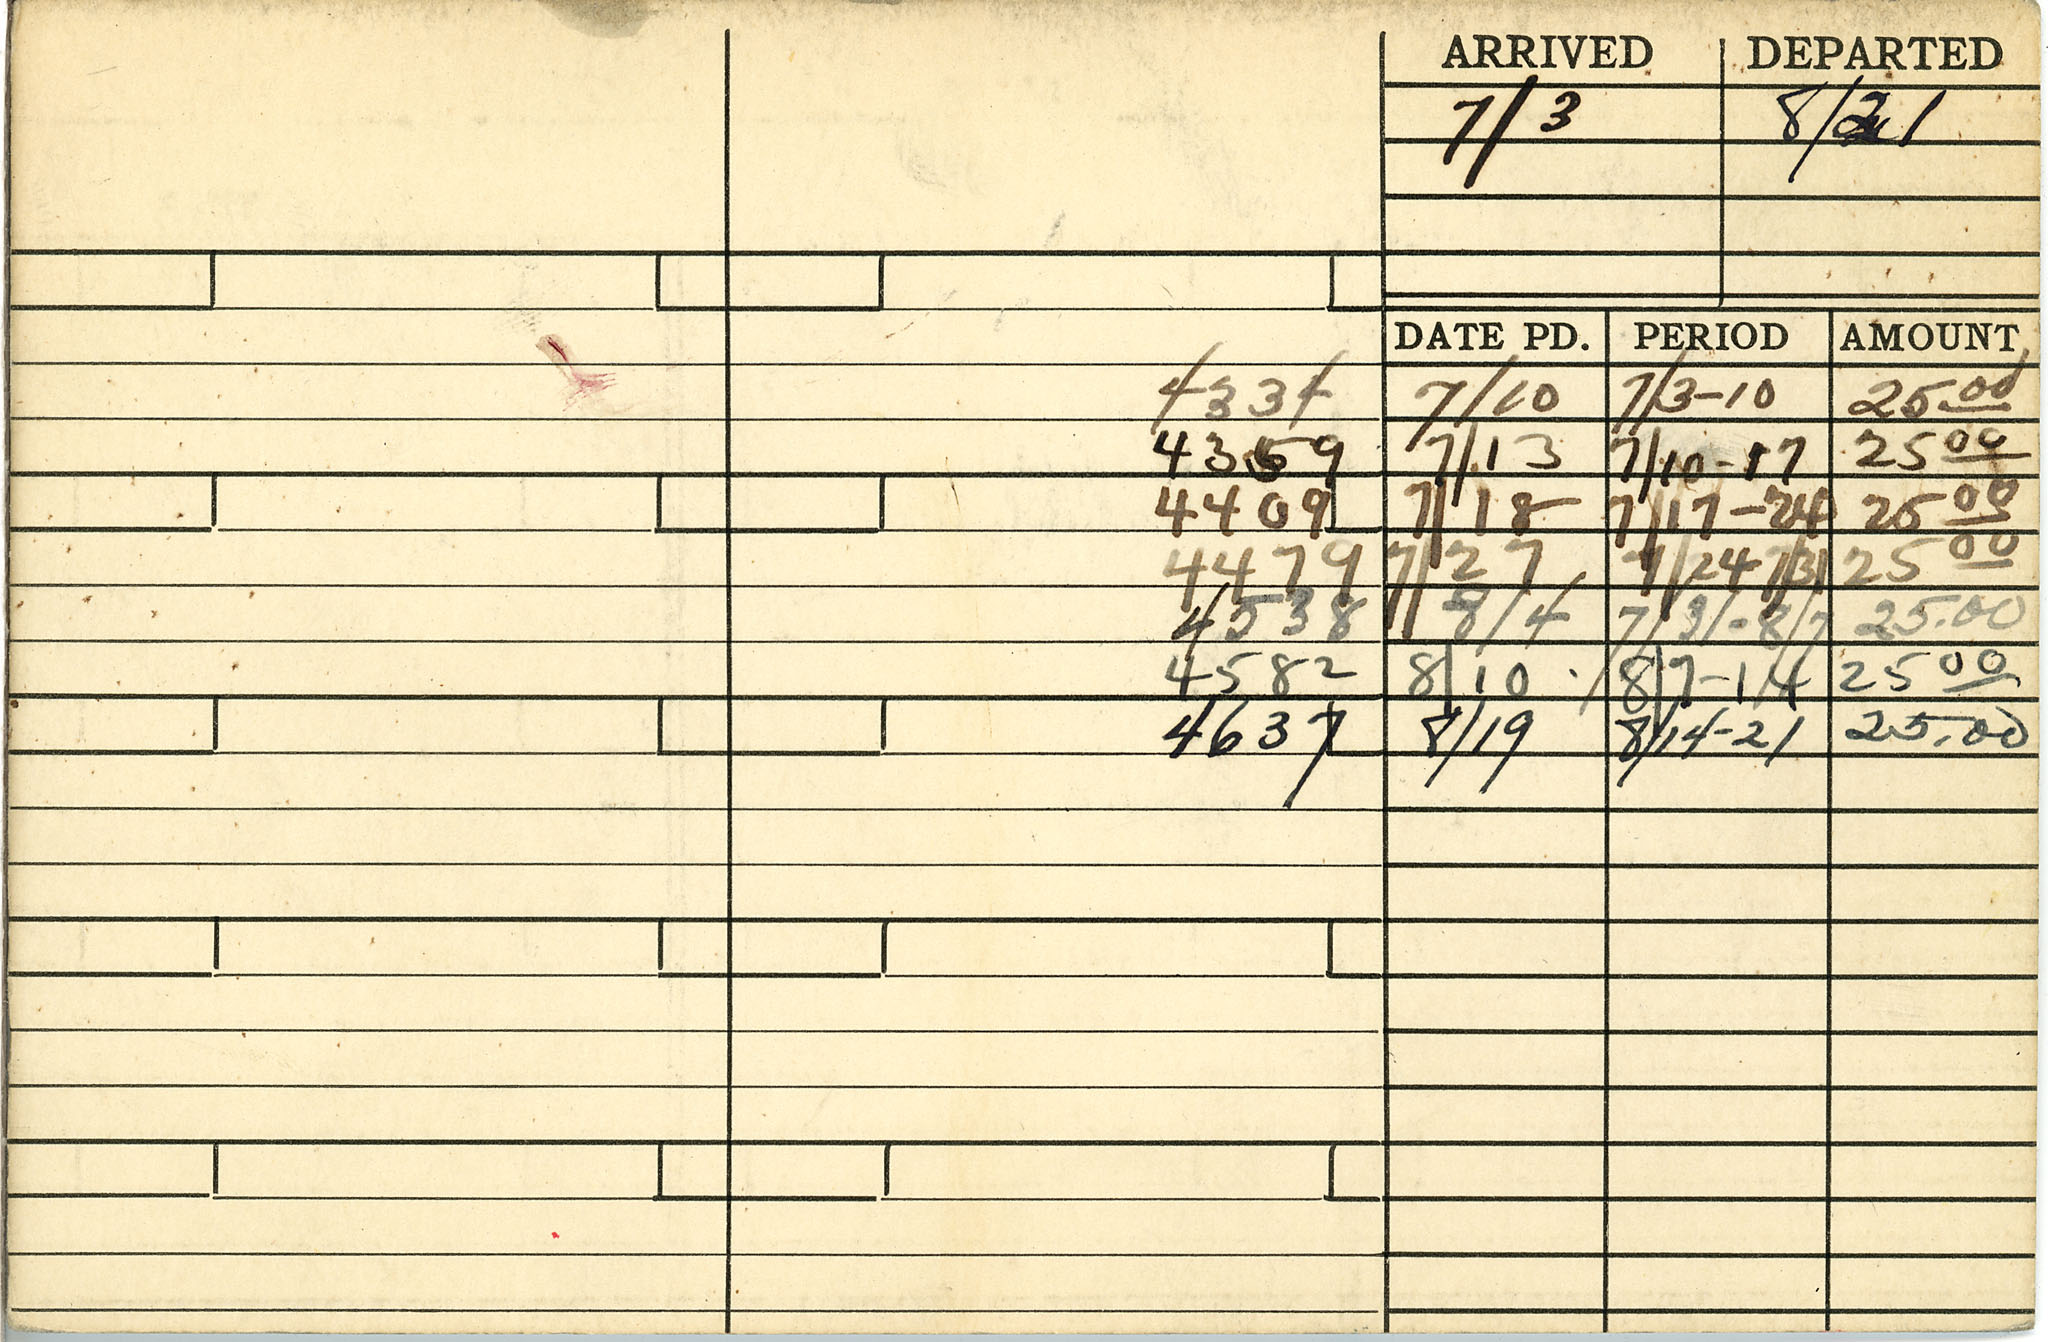 ARRIVED DEPARTED
7/3 8/21
DATE PD. PERIOD AMOUNT
4334 7/10 7/3-10 25.00
4369 7/13 7/10-17 25 00
4409 7/18 7/17-24 25 00
4479 7/27 7/24-7/31 25 00
4538 8/4 7/31-8/7 25.00
4582 8/10 8/7-14 25 00
4637 8/19 8/14-21 25.00